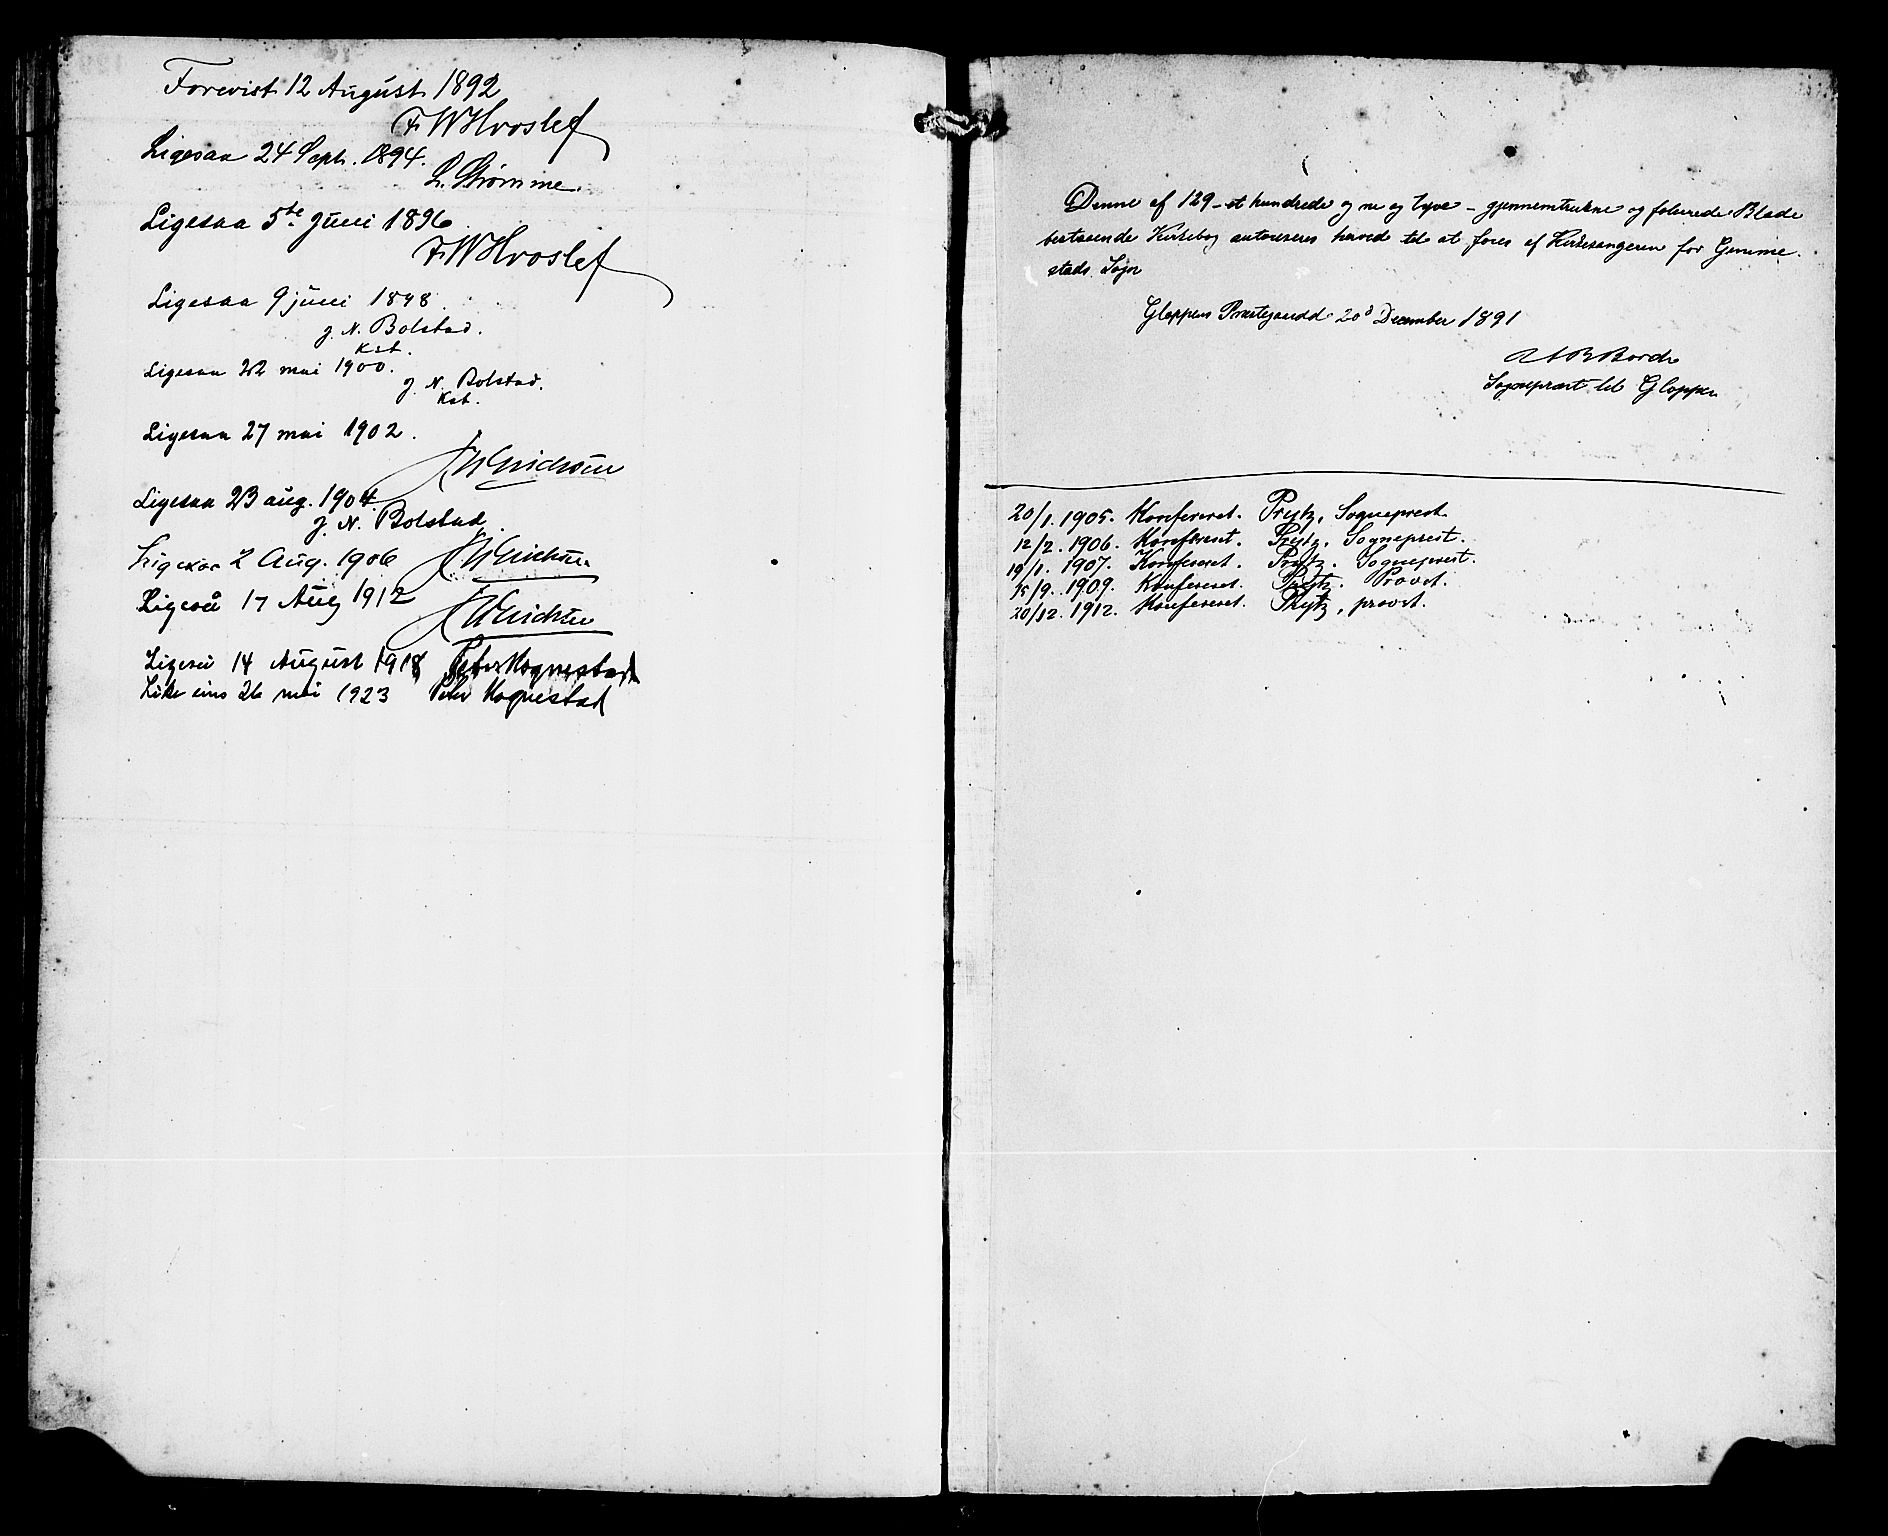 Forevist 12 August 1892
F W Hvoslef
Ligesaa 24 Sept. 1894.
L. Strømme.
Ligesaa 5te Juni 1896
F W Hvoslef
Ligesaa 9 juni 1898.
J. N. Bolstad.
Kst.
Ligesaa 22 mai 1900.
J. N. Bolstad.
Kst.
Ligesaa 27 mai 1902.
Erichsen
Ligesaa 23 aug. 1904.
J. N. Bolstad.
Ligesaa 2 Aug. 1906 Erichsen
Ligesaa 17 Aug 1912 Erichsen
Ligesaa 14 August 1918 Peter Hognestad
Like eins 26 mai 1923 Peter Hognestad
Denne af 129 – et hundrede og ni og tyve – gjennemtrukne og folierede Blade
bestaaende Kirkebog autoriseres herved til at føres af Kirkesangeren for Gimme-
stads Sogn
Gloppens Præstegaard 20d December 1891
Sognepræst til Gloppen
20/1. 1905. Konfereret. Prytz, Sogneprest.
12/2. 1906. Konfereret. Prytz, Sogneprest.
19/1. 1907. Konfereret. Prytz. Sogneprest.
15/9. 1909. Konfereret. Prytz. Provst.
20/12. 1912. Konfereret. Prytz, provst.